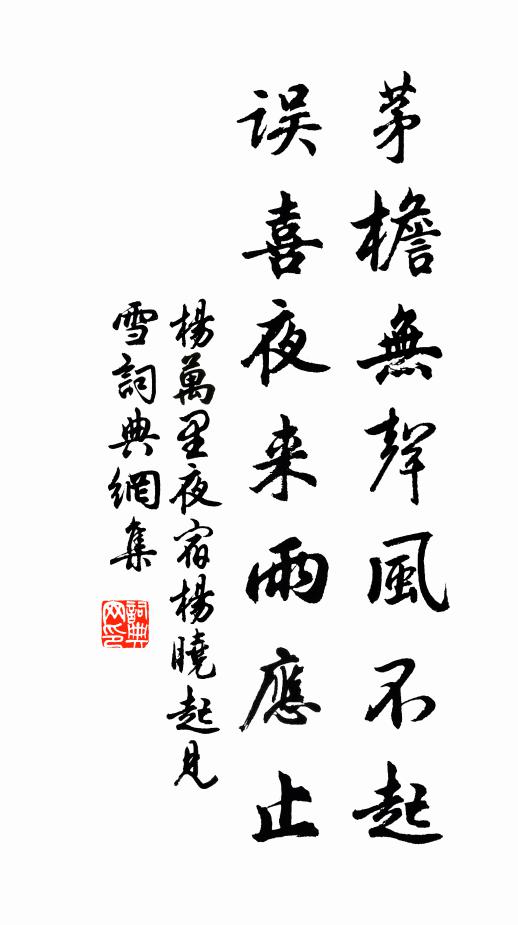 茅檐無聲風不起
誤喜夜来雨應止
楊萬里夜宿楊曉起見
雪詞典網集
詞典
网印